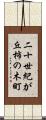 二十世紀が丘柿の木町